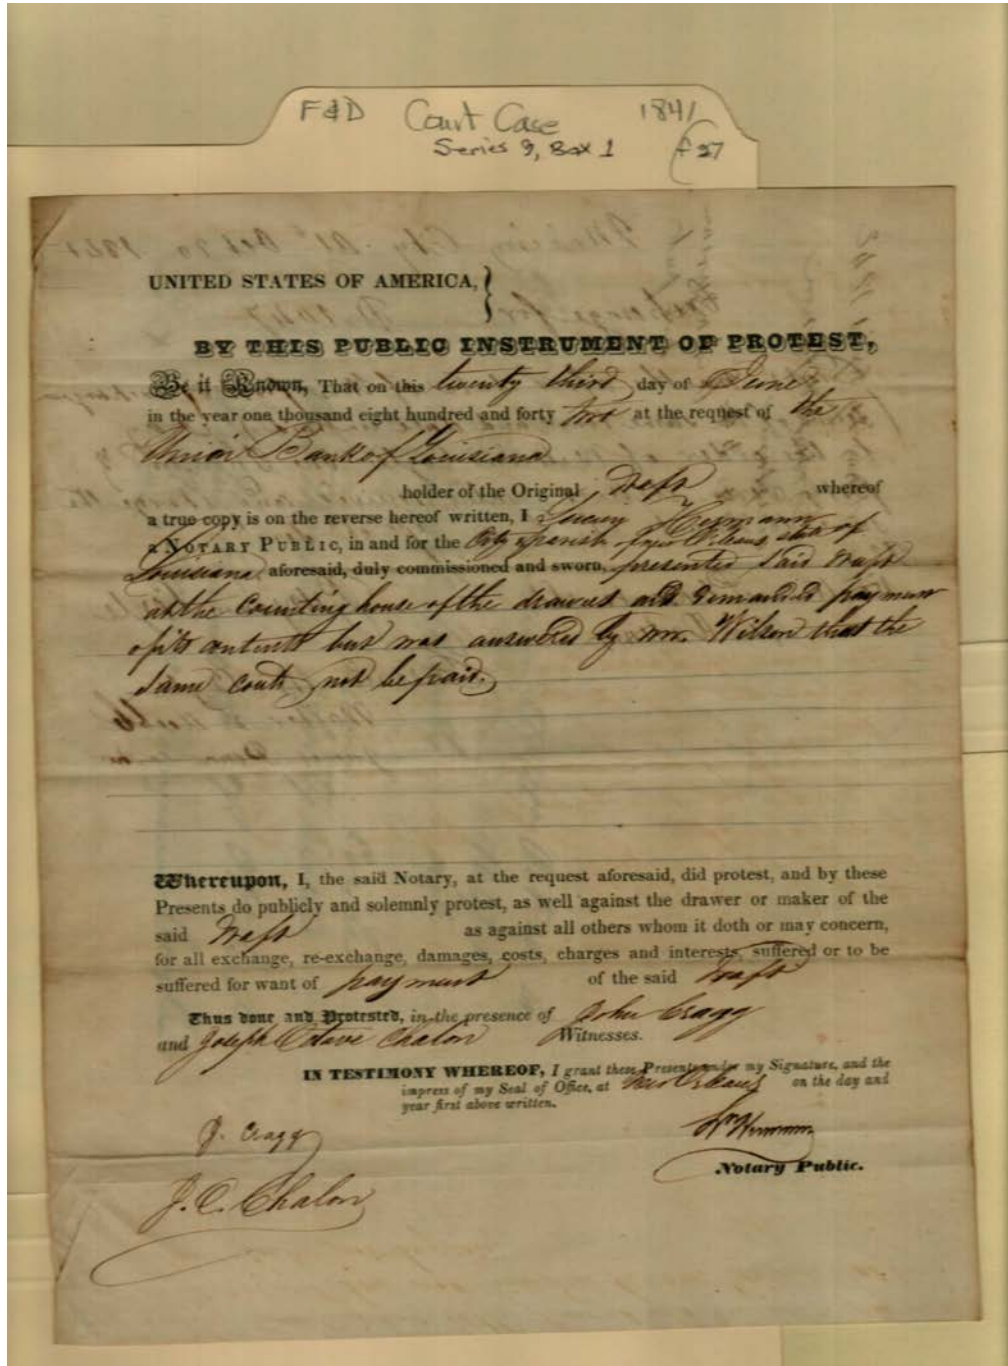 F&D Court Case 1841
Series 9, Box 1 f 27
UNITED STATES OF AMERICA,
BY THIS PUBLIC INSTRUMENT OF PROTEST,
Be it Known, That on this twenty third day of June
in the year one thousand eight hundred and forty two at the request of the
Union Bank of Louisiana
holder of the Original Draft whereof
a true copy is on the reverse hereof written, I Hermann
a NOTARY PUBLIC, in and for the City & parish of New Orleans, state of
Louisiana aforesaid, duly commissioned and sworn, presented said draft
at the Counting house of the drawees and demanded payment
of its contents but was answered by Mr. Wilson that the
same could not be paid.
Whereupon, I, the said Notary, at the request aforesaid, did protest, and by these
Presents do publicly and solemnly protest, as well against the drawer or maker of the
said Draft as against all others whom it doth or may concern,
for all exchange, re-exchange, damages, costs, charges and interests, suffered or to be
suffered for want of payment of the said Draft
Thus done and Protested, in the presence of John Cragg
and Joseph Octave Chalon Witnesses.
IN TESTIMONY WHEREOF, I grant these Presents under my Signature, and the
impress of my Seal of Office, at New Orleans on the day and
year first above written.
J. Cragg
Notary Public.
J. O. Chalon